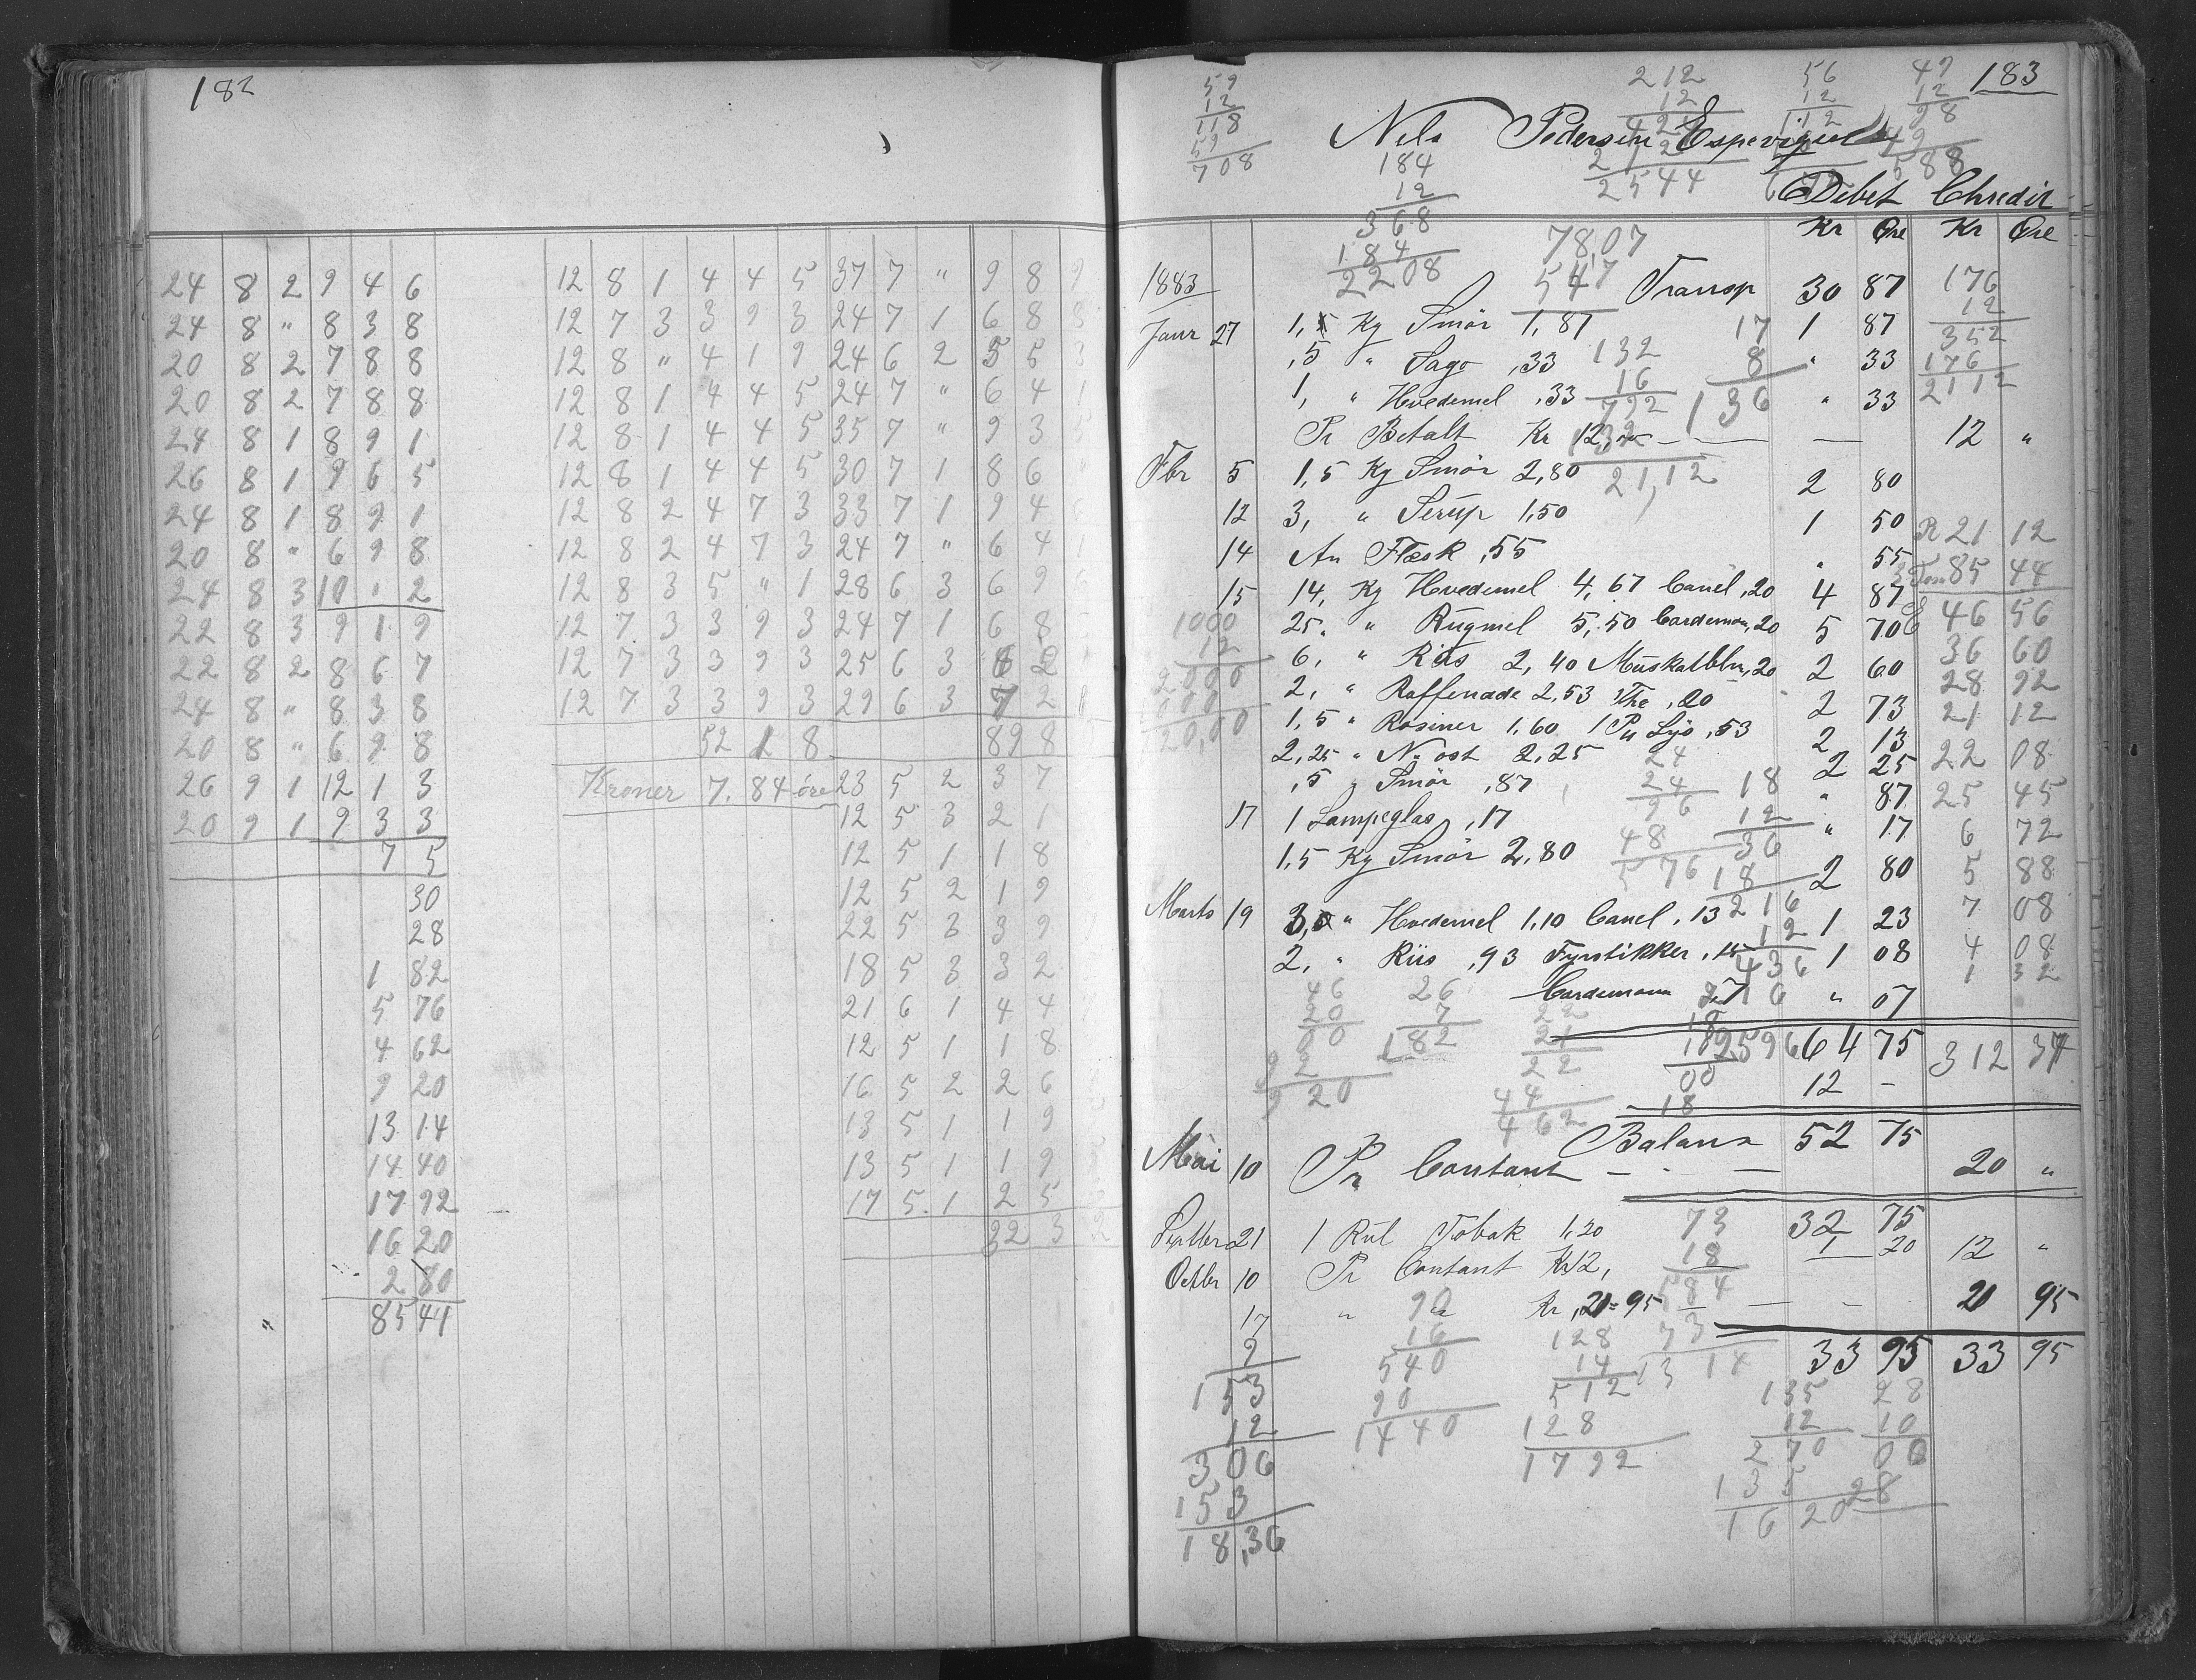 182
24 8 2 9 4 6
24 8 " 8 3 8
20 8 2 7 8 8
20 8 2 7 8 8
24 8 1 8 9 1
26 8 1 9 6 5
24 8 1 8 9 1
20 8 " 6 9 8
24 8 3 10 " 2
22 8 3 9 1 9
22 8 2 8 6 7
24 8 " 8 3 8
20 8 " 6 9 8
26 9 1 12 1 3
20 9 1 9 3 3
7 5
30
28
1 82
5 76
4 62
9 20
13 14
14 40
17 92
16 20
2 80
85 44
12 8 1 4 4 5 37 7 " 9 8 9
12 7 3 3 9 3 24 7 1 6 8
12 8 " 4 1 9 24 6 2 5 5
12 8 1 4 4 5 24 7 " 6 4 1
12 8 1 4 4 5 35 7 " 9 3 5
12 8 1 4 4 5 30 7 1 8 6
12 8 2 4 7 3 33 7 1 9 4
12 8 2 4 7 3 24 7 " 6 4 1
12 8 3 5 " 1 28 6 3 6 9
12 7 3 3 9 3 24 7 1 6 8
12 7 3 3 9 3 25 6 3 6 2
12 7 3 3 9 3 29 6 3 7 2
52 1 8 89 8
Kroner 7.84 öre 23 5 2 3 7
12 5 3 2 1
12 5 1 1 8
12 5 2 1 9
22 5 3 3 9
18 5 3 3 2
21 6 1 4 4
12 5 1 1 8
16 5 2 2 6
13 5 1 1 9
13 5 1 1 9
17 5 1 2 5
32 3 2
183
59
12
118
59
708
212
12
424
212
2544
56
12
112
49
12
98
49
588
Nils Pedersen Espevigen
184
12
368
184
2208
Debet Chredit
Kr Øre Kr Øre
78,07
547
1883 Transp 30 87
176
12
352
176
2112
Janr 27 1, Kg Smör 1,87 1 87
,5 " Sago ,33 " 33
1, " Hvedemel ,33 " 33
132
16
792
132
21,12
17
8
136
Pr Betalt Kr 12,00 — — — 12 "
Fbr 5 1,5 Kg Smör 2,80 2 80
12 3, " Serup 1,50 1 50
14 An Flæsk ,55 " 55
15 14, Kg Hvedemel 4,67 Canel ,20 4 87
25, " Rugmel 5,50 Cardemom ,20 5 70
6, " Riis 2,40 Muskatblm ,20 2 60
2, " Raffenade 2,53 The ,20 2 73
1,5 " Rosiner 1,60 1 Pu Lys ,53 2 13
2,25 " N. ost 2,25 2 25
,5 " Smör ,87 " 87
17 1 Lampeglas ,17 " 17
1,5 Kg Smör 2,80 2 80
Marts 19 3,0 " Hvedemel 1,10 Canel ,13 1 23
2, " Riis ,93 Fyrstikker ,15 1 08
Cardemom ,7 " 07
64 75
12 -
R 21 12
85 44
46 56
36 60
28 92
21 12
22 08
25 45
6 72
5 88
7 08
4 08
1 32
312 37
1000
12
2000
1000
120,00
24
24
96
48
576
18
12
36
18
216
12
436
216
2596
46
20
00
92
9 20
26
7
182
22
21
22
44
462
18
18
00
18
Balans 52 75
Mai 10 Pr Contant — - — 20 "
32 75
Septbr 21 1 Rul Tobak 1,20 1 20
Octbr 10 Pr Contant Kr 12, 12 "
17 " " Kr ,21=95 — — - 21 95
33 95 33 95
73
18
584
73
13 14
9
153
12
306
153
18,36
90
16
540
90
1440
128
14
512
128
1792
135
12
270
135
1620
28
10
00
28